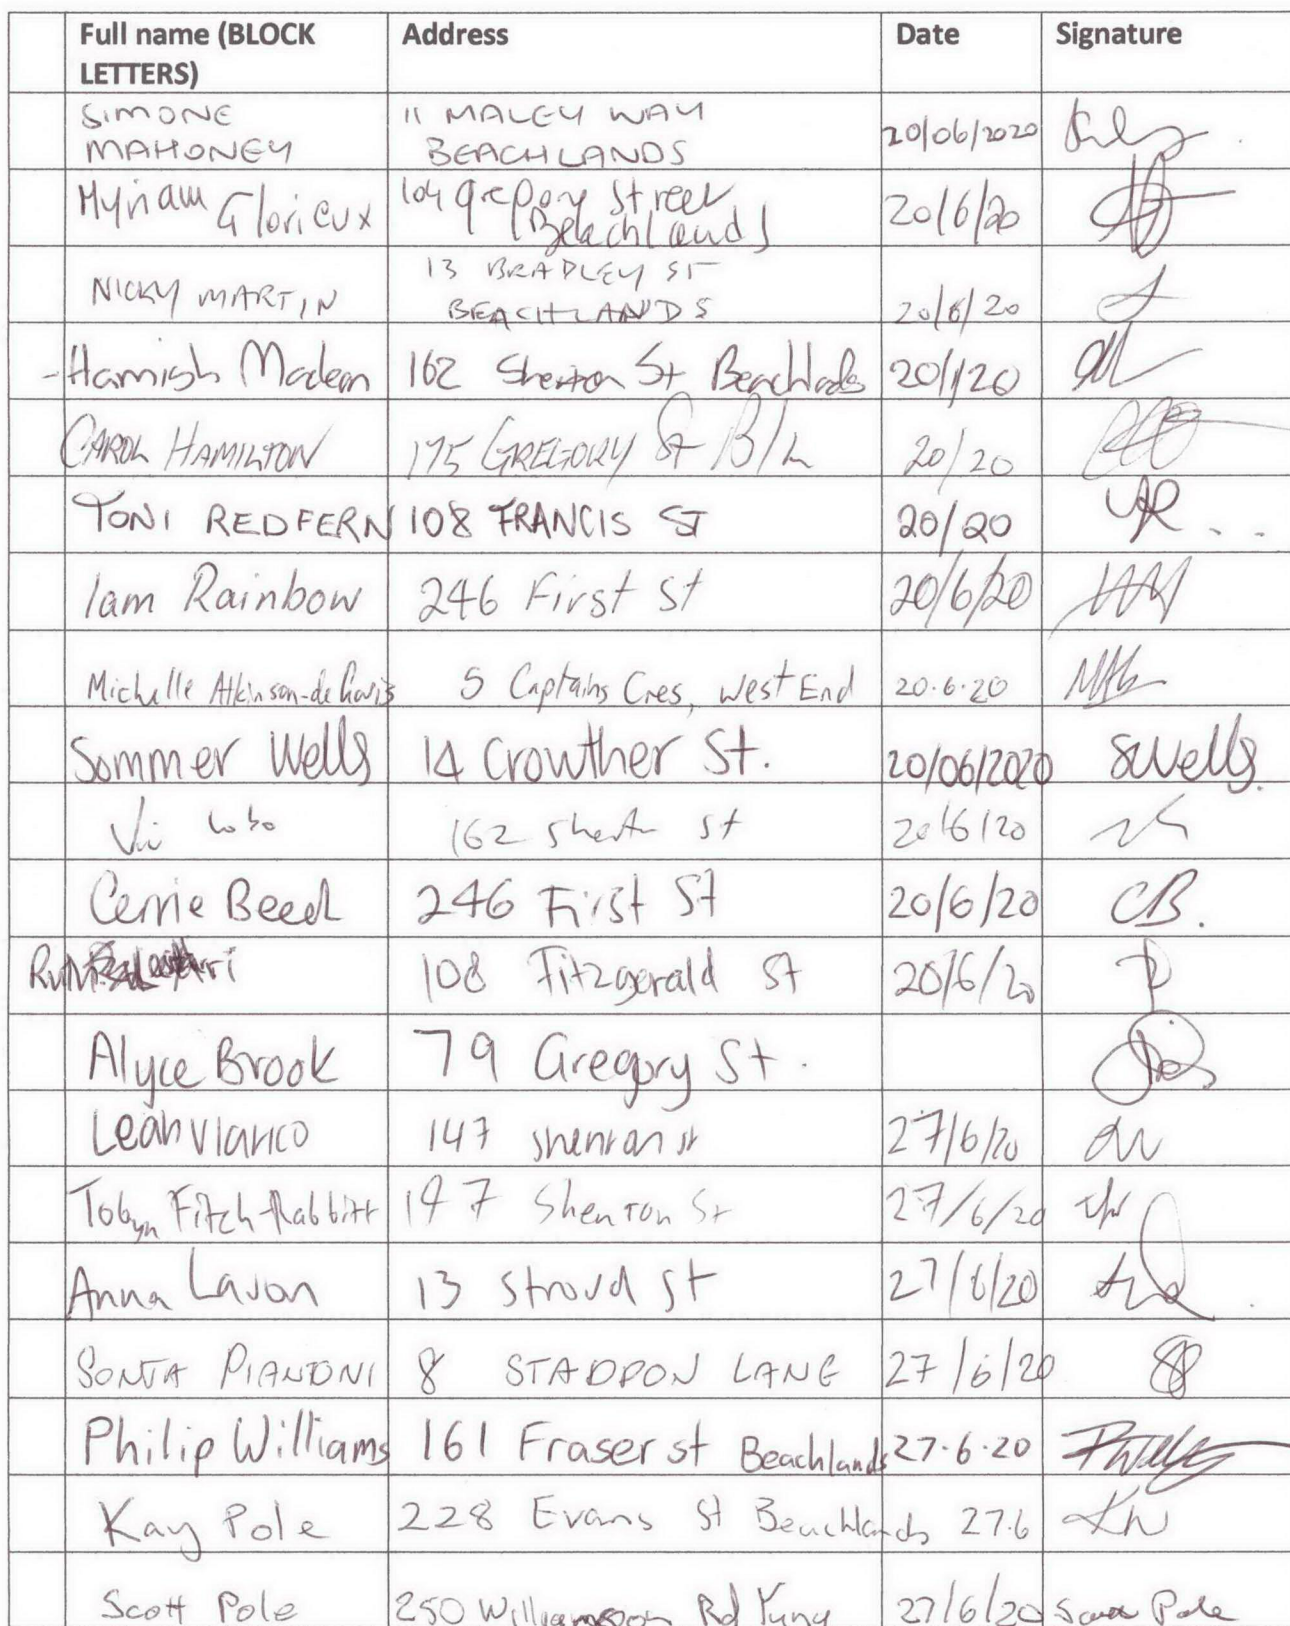 Full name (BLOCK LETTERS) Address Date Signature
SIMONE MAHONEY 11 MALEY WAY BEACHLANDS 20/06/2020
Myriam Glorieux 104 Gregory Street Beachlands 20/6/20
NICKY MARTIN 13 BRADLEY ST BEACHLANDS 20/6/20
Hamish 162 Shenton St 20/1/20
CAROL HAMILTON 175 GREGORY St B/L 20/20
TONI REDFERN 108 FRANCIS ST 20/20
Iam Rainbow 246 First St 20/6/20
Michelle 5 Captains Cres, West End 20.6.20
Sommer Wells 14 Crowther St. 20/06/2020 SWells
Lobo 162 St 20/6/20
Beed 246 First St 20/6/20 CB.
108 Fitzgerald St 20/6/20
Alyce Brook 79 Gregory St.
Leah 147 Shenton St 27/6/20
Tobyn Fitch-Rabbitt 147 Shenton St 27/6/20
Anna 13 Stroud St 27/6/20
PIANTONI 8 STADDON LANE 27/6/20
Philip Williams 161 Fraser st Beachlands 27.6.20
Kay Pole 228 Evans St Beachlands 27.6
Scott Pole 250 Rd 27/6/20 Pole